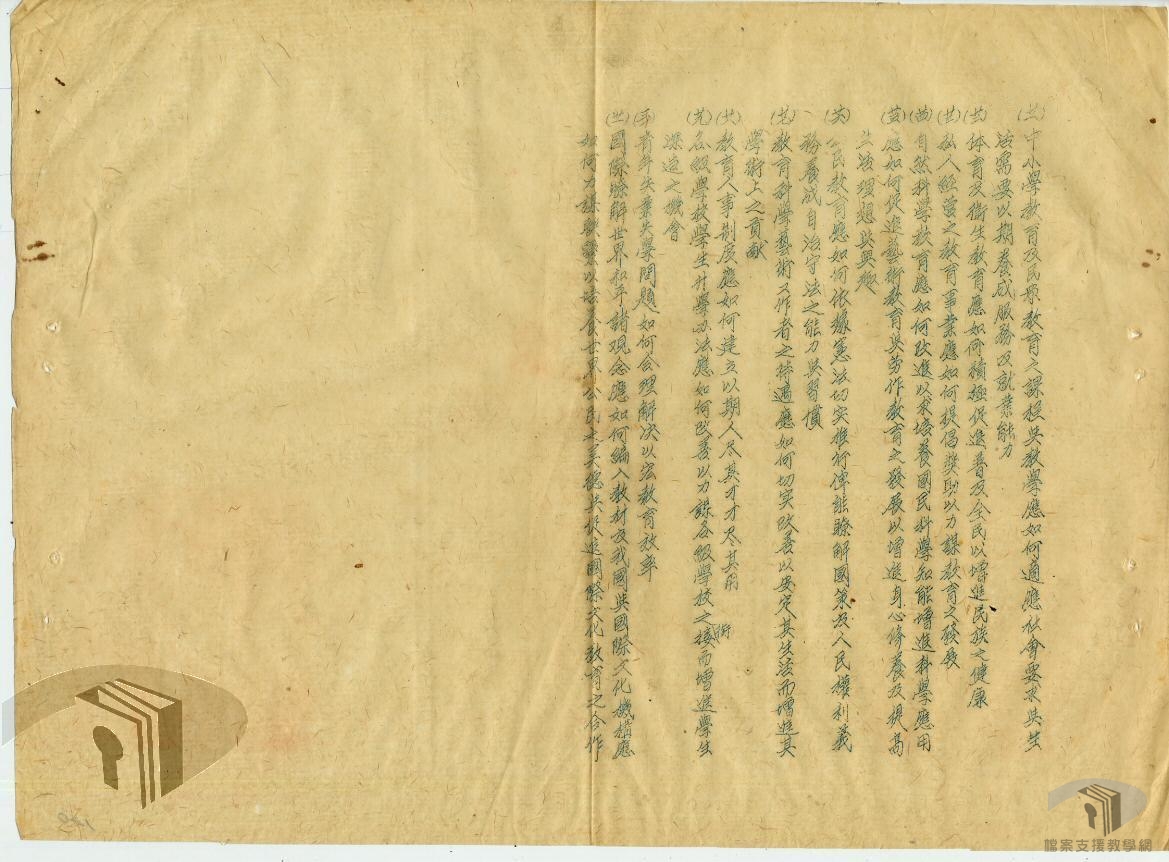 (廿一)中小學教育及民眾教育之課程與教學應如何適應社會要求與生
活需要以期養成服務及就業能力
(廿二)体育及衛生教育應如何積極促進普及全民以增進民族之健康
(廿三)私人經營之教育事業應如何提倡獎助以力謀教育之發展
(廿四)自然科學教育應如何改進以求培養國民科學知能增進科學應用
(廿五)應如何促進藝術教育與勞作教育之發展以增進身心修養及提高
生活理想與興趣
(廿六)公民教育應如何依據憲法切实推行俾能瞭解國策及人民權利義
務養成自治守法之能力與習慣
(廿七)教育科學藝術工作者之待遇應如何切实改善以安定其生活而增進其
學術上之貢献
(廿八)教育人事制度應如何建立以期人尽其才才尽其用
(廿九)各級學校學生升學办法應如何改善以力謀各級學校之銜接而增進學生
深造之機會
(三十)青年失業失學問題如何合理解决以宏教育效率
(卅一)國際瞭解世界和平諸观念應如何編入教材及我國與國際文化機構應
如何力謀联繫以培養世界公民之美德與促進國際文化教育之合作
檔案支援教學網